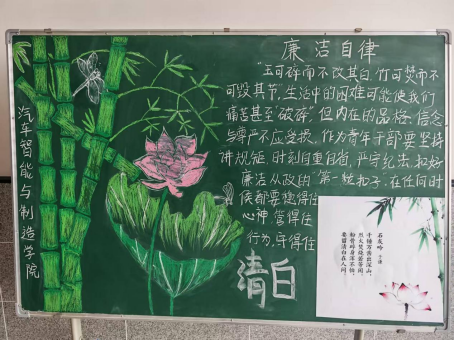 汽车智能与制造学院
廉洁自律
"玉可碎而不改其白,竹可焚而不
可毁其节。"生活中的困难可能使我们
痛苦甚至"破碎",但内在的品格、信念
与尊严不应受损。作为青年干部要坚持
讲规矩,时刻自重自省,严守纪法,扣好
廉洁从政的"第一粒扣子",在任何时
候都要稳得住
心神、管得住
行为、守得住
清白
石灰吟
于谦
千锤万凿出深山,
烈火焚烧若等闲。
粉骨碎身浑不怕,
要留清白在人间。